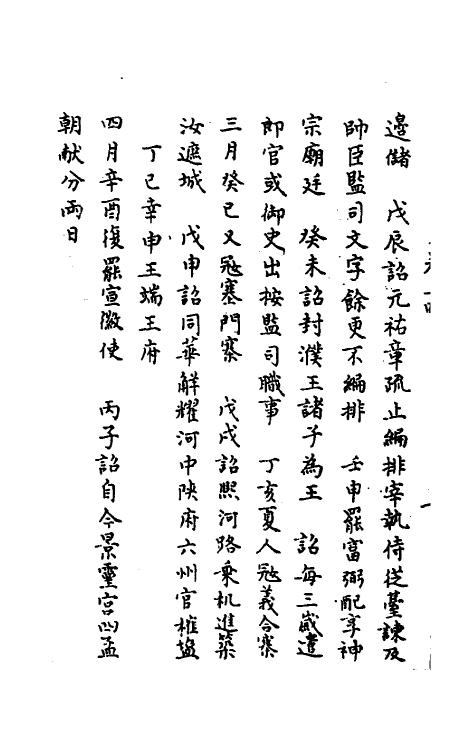 邊儲　戊辰詔元祐章疏止編排宰執侍從臺諫及
帥臣監司文字餘更不編排　壬申罷富弼配享神
宗廟廷　癸未詔封濮王諸子為王　詔每三歲遣
郎官或御史出按監司職事　丁亥夏人寇義合寨
三月癸巳又寇塞門寨　戊戌詔熙河路乗机進築
汝遮城　戊申詔同華解耀河中陜府六州官榷塩
丁巳幸申王端王府
四月辛酉復罷宣徽使　丙子詔自今景靈宫四孟
朝献分両日